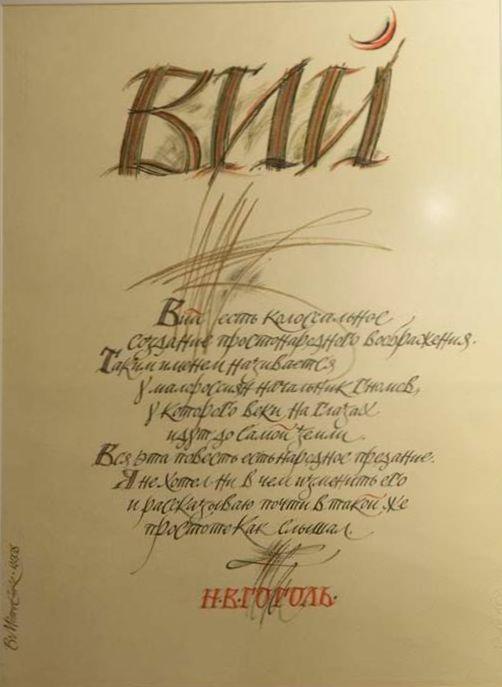 ВИЙ
Вий есть колоссальное
создание простонародного воображения.
Таким именем называется
у малороссиян начальник гномов,
у которого веки на глазах
идут до самой земли.
Вся эта повесть есть народное предание.
Я не хотел ни в чем изменить его
и рассказываю почти в такой же
простоте как слышал.
Н·В·ГОГОЛЬ·